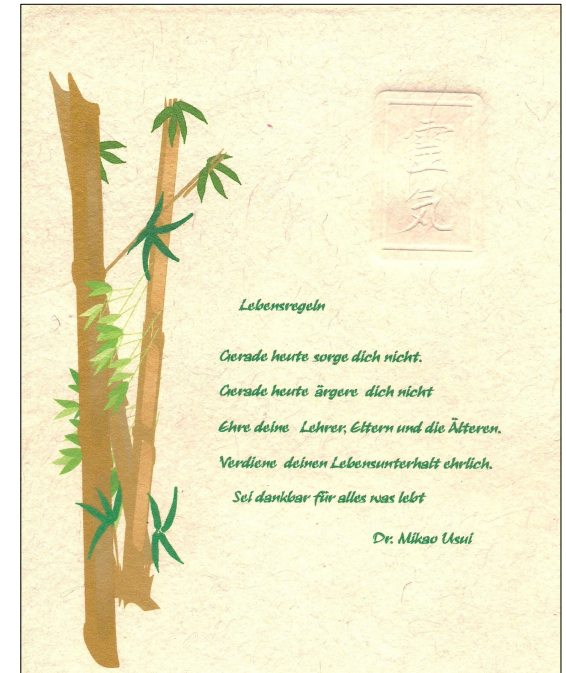 靈
気
Lebensregeln
Gerade heute sorge dich nicht.
Gerade heute ärgere dich nicht
Ehre deine Lehrer, Eltern und die Älteren.
Verdiene deinen Lebensunterhalt ehrlich.
Sei dankbar für alles was lebt
Dr. Mikao Usui